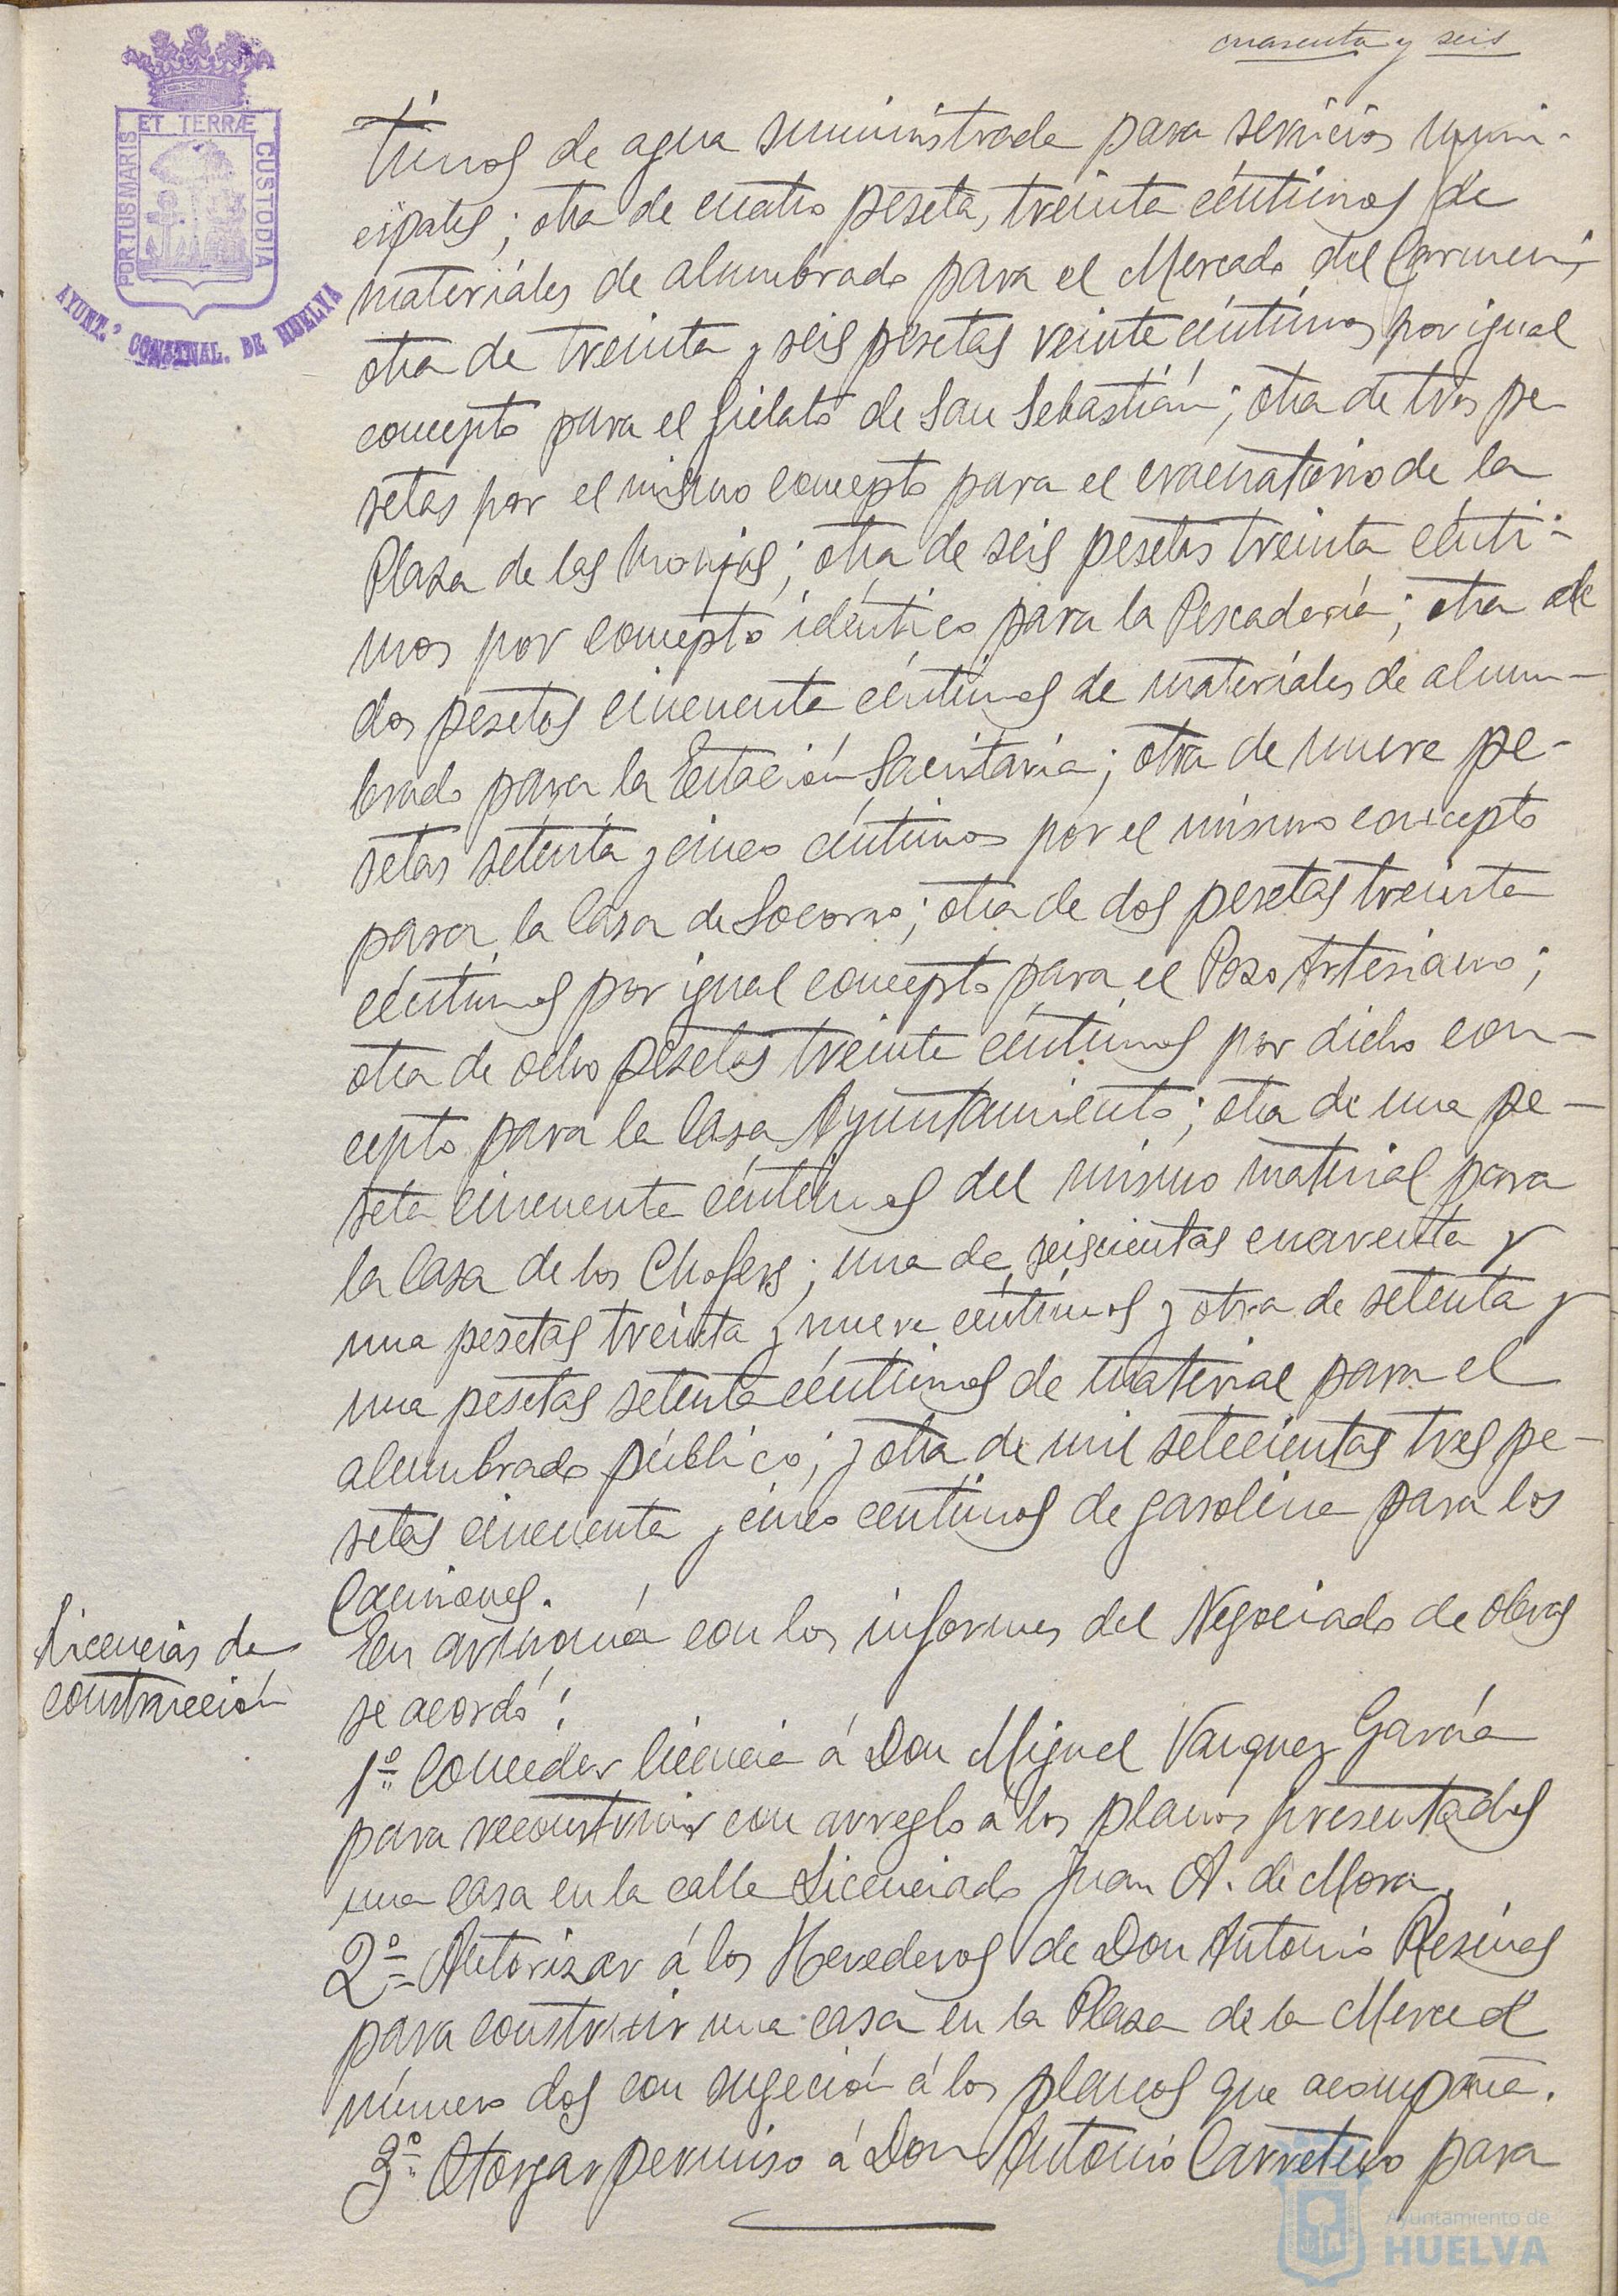 cuarenta y seis
PORTUS MARIS
ET TERRÆ
CUSTODIA
AYUNT.º CONSTNAL. DE HUELVA
timos de agua suministrada para servicios muni-
cipales; otra de cuatro peseta, treinta céntimos de
materiales de alumbrado para el Mercado del Carmen;
otra de treinta y seis pesetas veinte céntimos por igual
concepto para el fielato de San Sebastián; otra de tres pe
setas por el mismo concepto para el evacuatorio de la
Plaza de las Monjas; otra de seis pesetas treinta cénti-
mos por concepto idéntico para la Pescadería; otra de
dos pesetas cincuenta céntimos de materiales de alum-
brado para la Estación Sanitaria; otra de nueve pe-
setas setenta y cinco céntimos por el mismo concepto
para la Casa de Socorro; otra de dos pesetas treinta
céntimos por igual concepto para el Pozo Artesiano;
otra de ocho pesetas treinta céntimos por dicho con-
cepto para la Casa Ayuntamiento; otra de una pe-
seta cincuenta céntimos del mismo material para
la Casa de los Chofers; una de seiscientas cuarenta y
una pesetas treinta y nueve céntimos y otra de setenta y
una pesetas setenta céntimos de material para el
alumbrado público; y otra de mil setecientas tres pe-
setas cincuenta y cinco centimos de gasolina para los
Camiones.
Licencias de
construcción
En armonía con los informes del Negociado de obras
se acordó:
1º Conceder licencia á Don Miguel Vazquez García
para reconstruir con arreglo á los planos presentados
una casa en la calle Licenciado Juan A. de Mora.
2º Autorizar á los Herederos de Don Antonio Resines
para construir una casa en la Plaza de la Merced
número dos con sugeción á los planos que acompaña.
3º Otorgar permiso á Don Antonio Carretero para
Ayuntamiento de
HUELVA